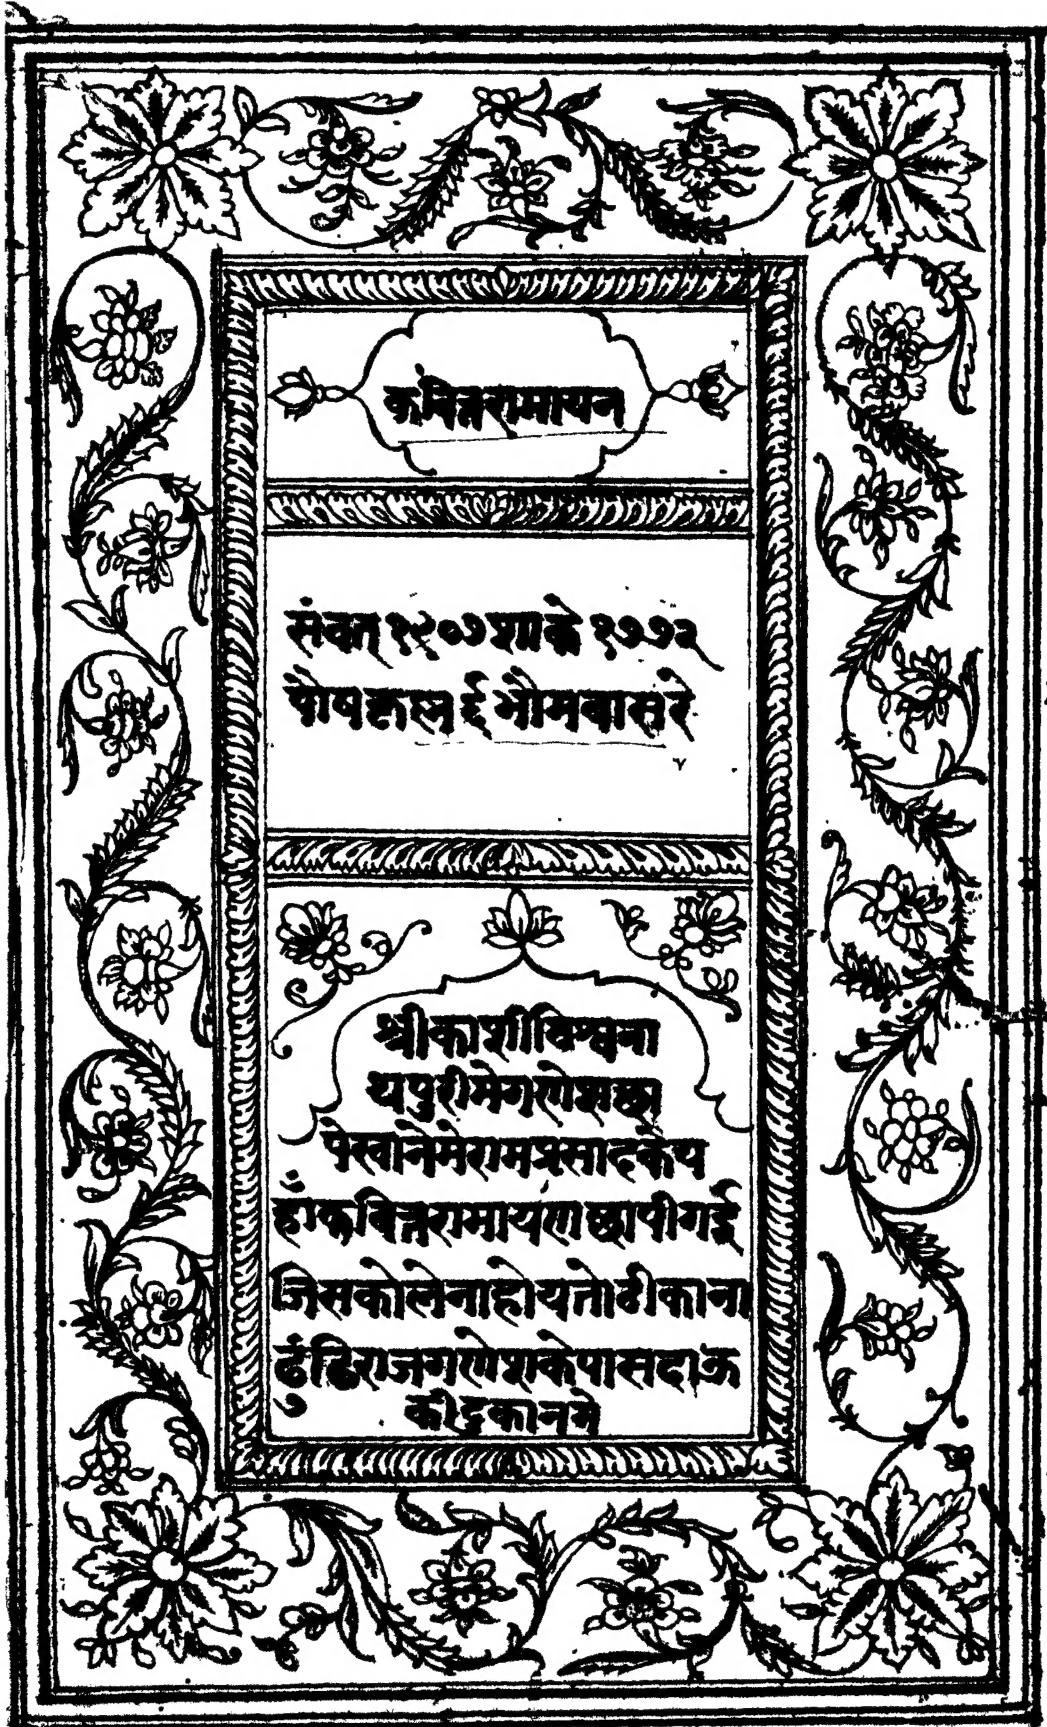 कवित्तरामायन
संवत् १९०७ शाके १७७२
पौषकृष्ण ८ भौमवासरे
श्रीकाशीविश्वना
थपुरीमेगणेशछा
पेखानेमेरामप्रसादकेय
हाँकवित्तरामायणछापीगई
जिसकोलेनाहोयतोठीकाना
ढुंढिराजगणेशकेपासदाऊ
कीदुकानमे